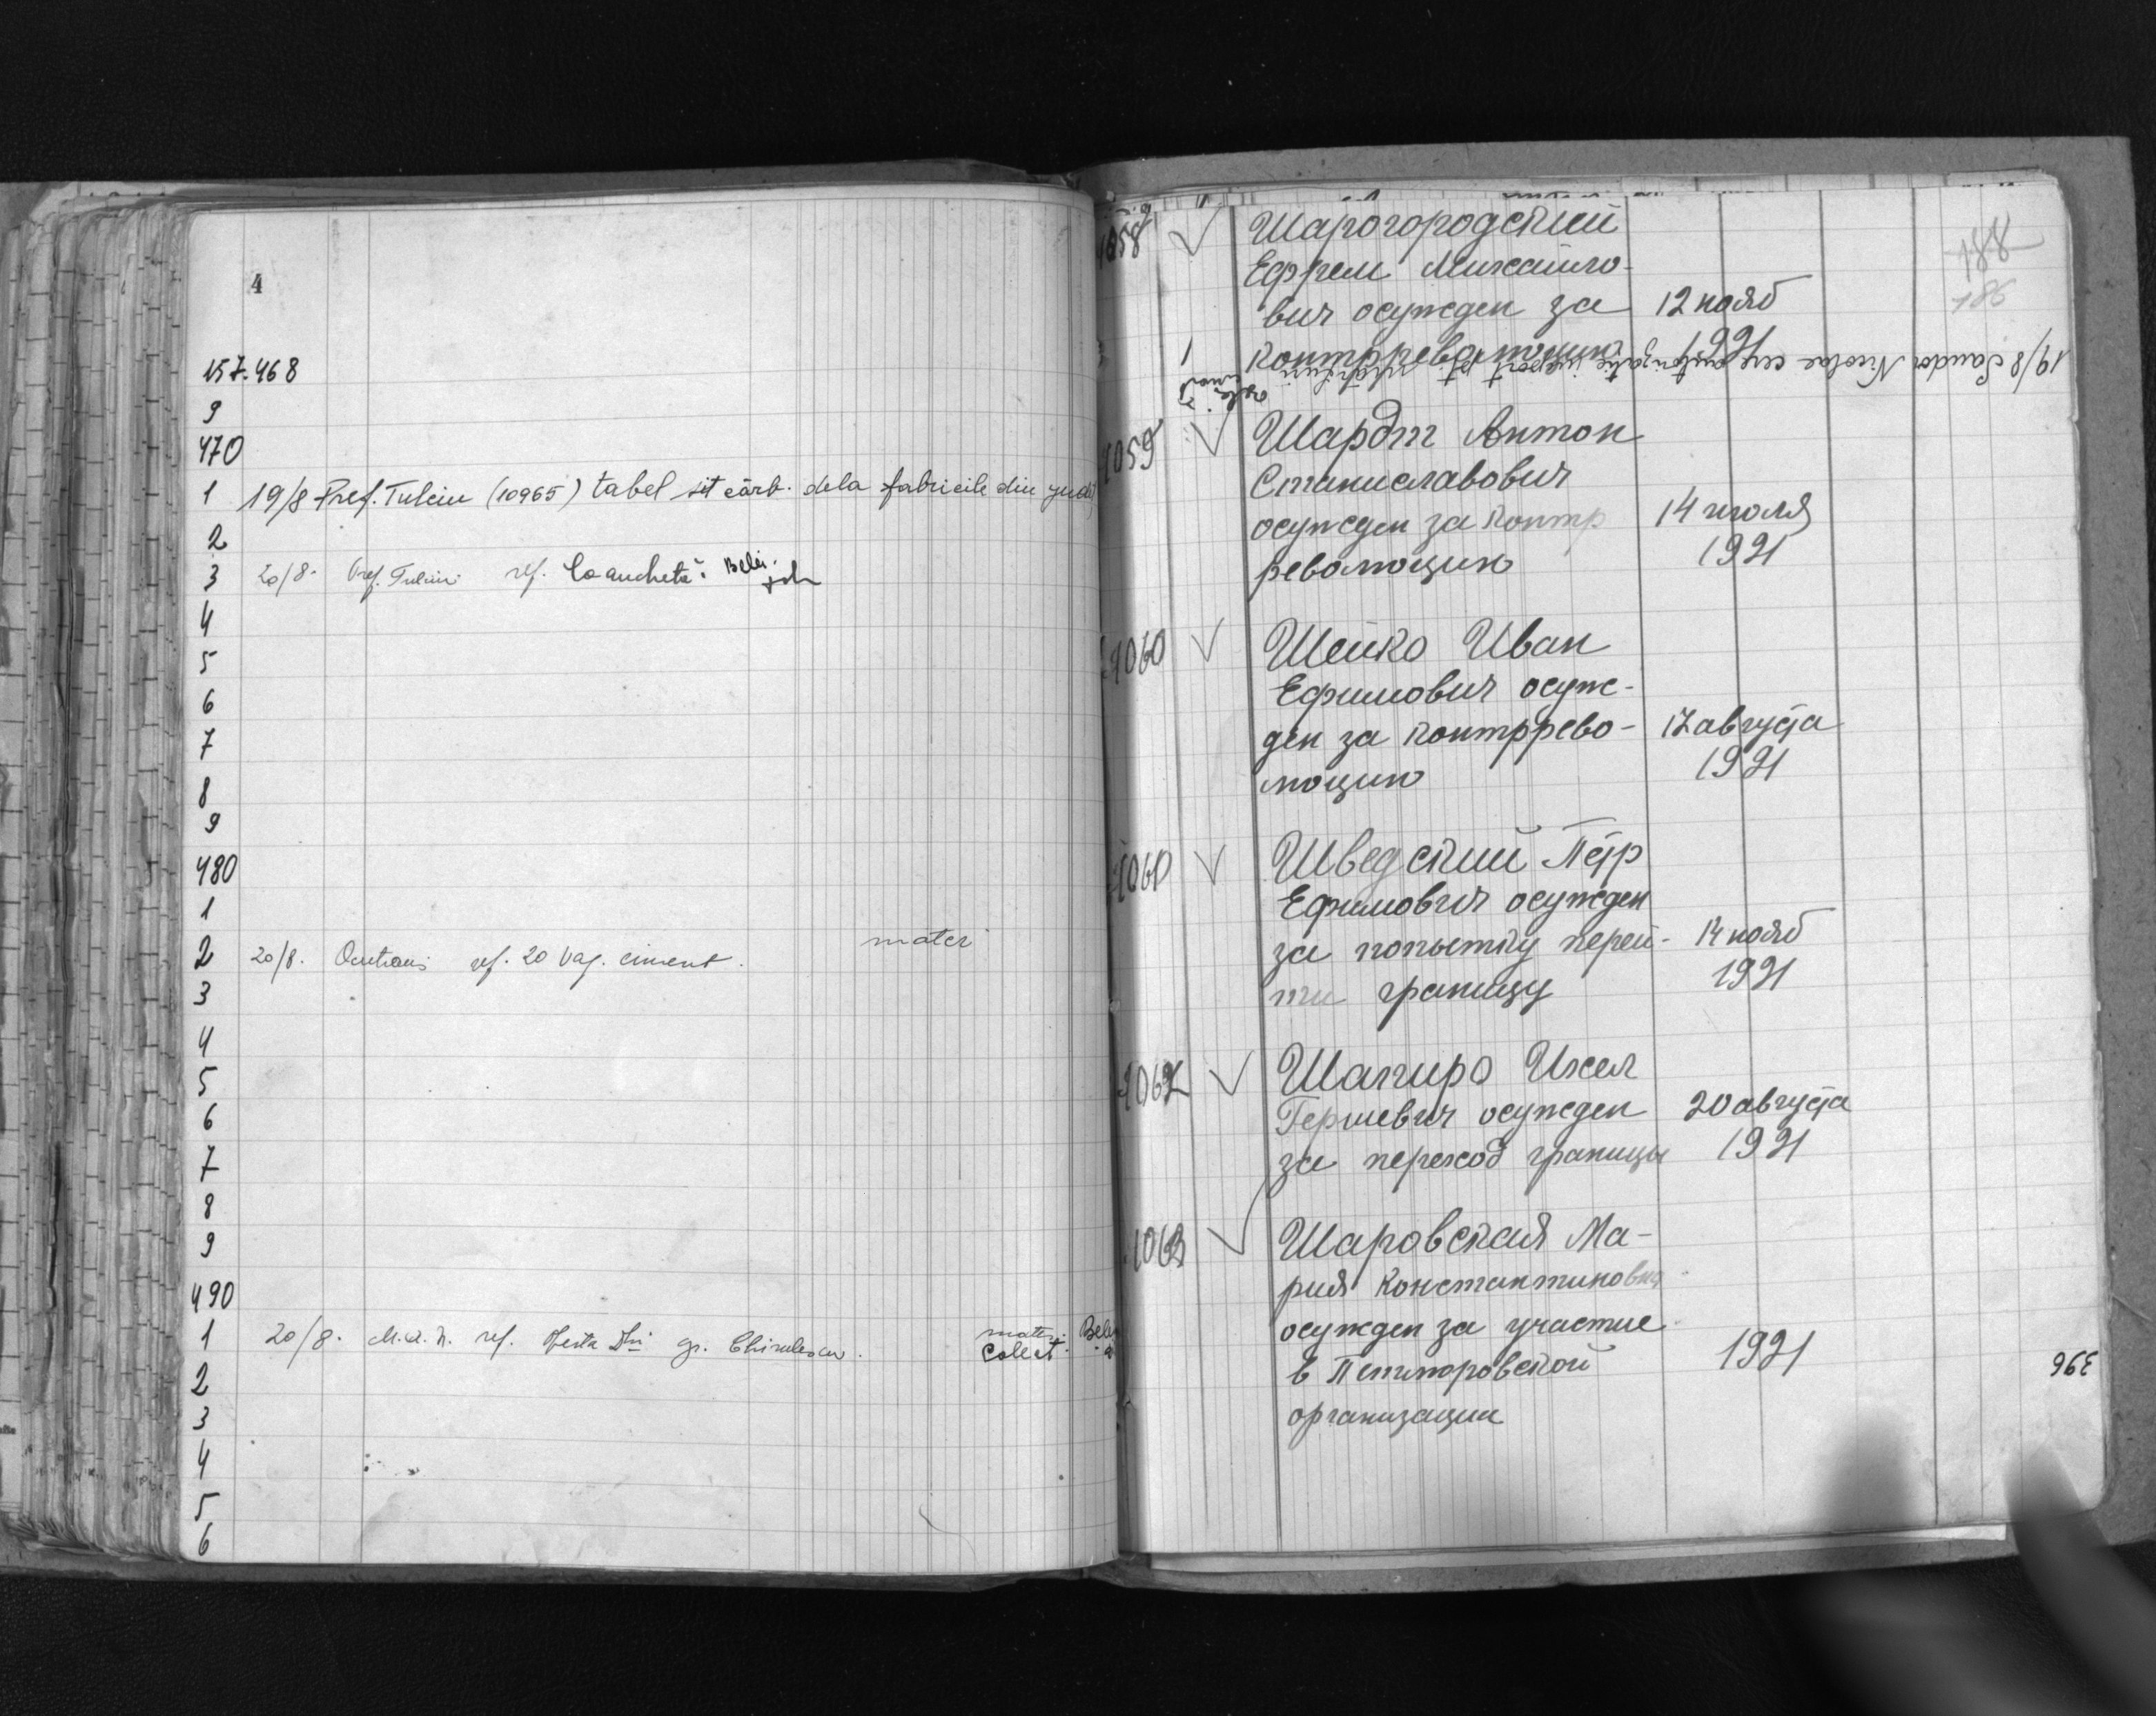 4
157.468
9
470
1 19/8 Pref. Tulciu (10965) tabel sit cărb. dela fabricile din județ
2
3 20/8. Pref. Tulciu ref. la anchetă. Belei
4
5
6
7
8
9
480
1
2 20/8. ref. 20 vag. ciment. mater
3
4
5
6
7
8
9
490
1 20/8. M.A.N. ref. gr. mater. Colect.
2
3
4
5
6
188
186
1058 Шарогородский
Ефрем Михайло-
вич осужден за 12 нояб
контрреволюцию 1921
1
19/8 Sandor Nicolae cere autorizație import
1059 Шардт Антон
Станиславович
осужден за контр 14 июля
революцию 1921
1060 Шейко Иван
Ефимович осуж-
ден за контррево- 17 августа
люцию 1921
1061 Шведский Петр
Ефимович осужден
за попытку перей- 14 нояб
ти границу 1921
1062 Шапиро Ихел
Гершевич осужден 20 августа
за переход границы 1921
1063 Шаровская Ма-
рия Константиновна
осужден за участие
в Петлюровской 1921
организации
396